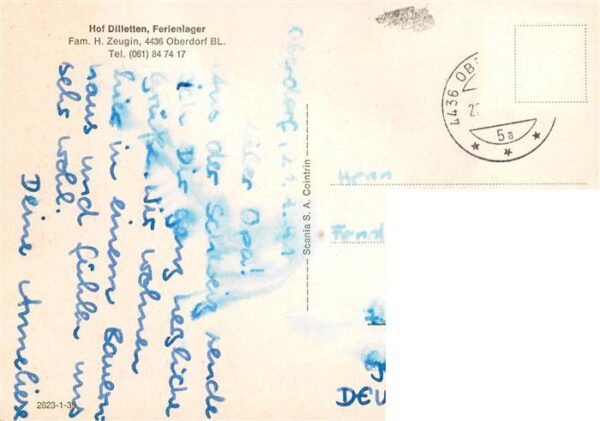 Hof Dilletten, Ferienlager
Fam. H. Zeugin, 4436 Oberdorf BL.
Tel. (061) 84 74 17
Oberdorf, 21.
Lieber Opa!
Aus der Schweiz sende
ich Dir ganz herzliche
Grüße. Wir wohnen
hier in einem Bauern-
haus und fühlen uns
sehr wohl.
Deine Anneliese
Scania S. A. Cointrin
4436 OBE
5a
Herrn
DEU
2623-1-39